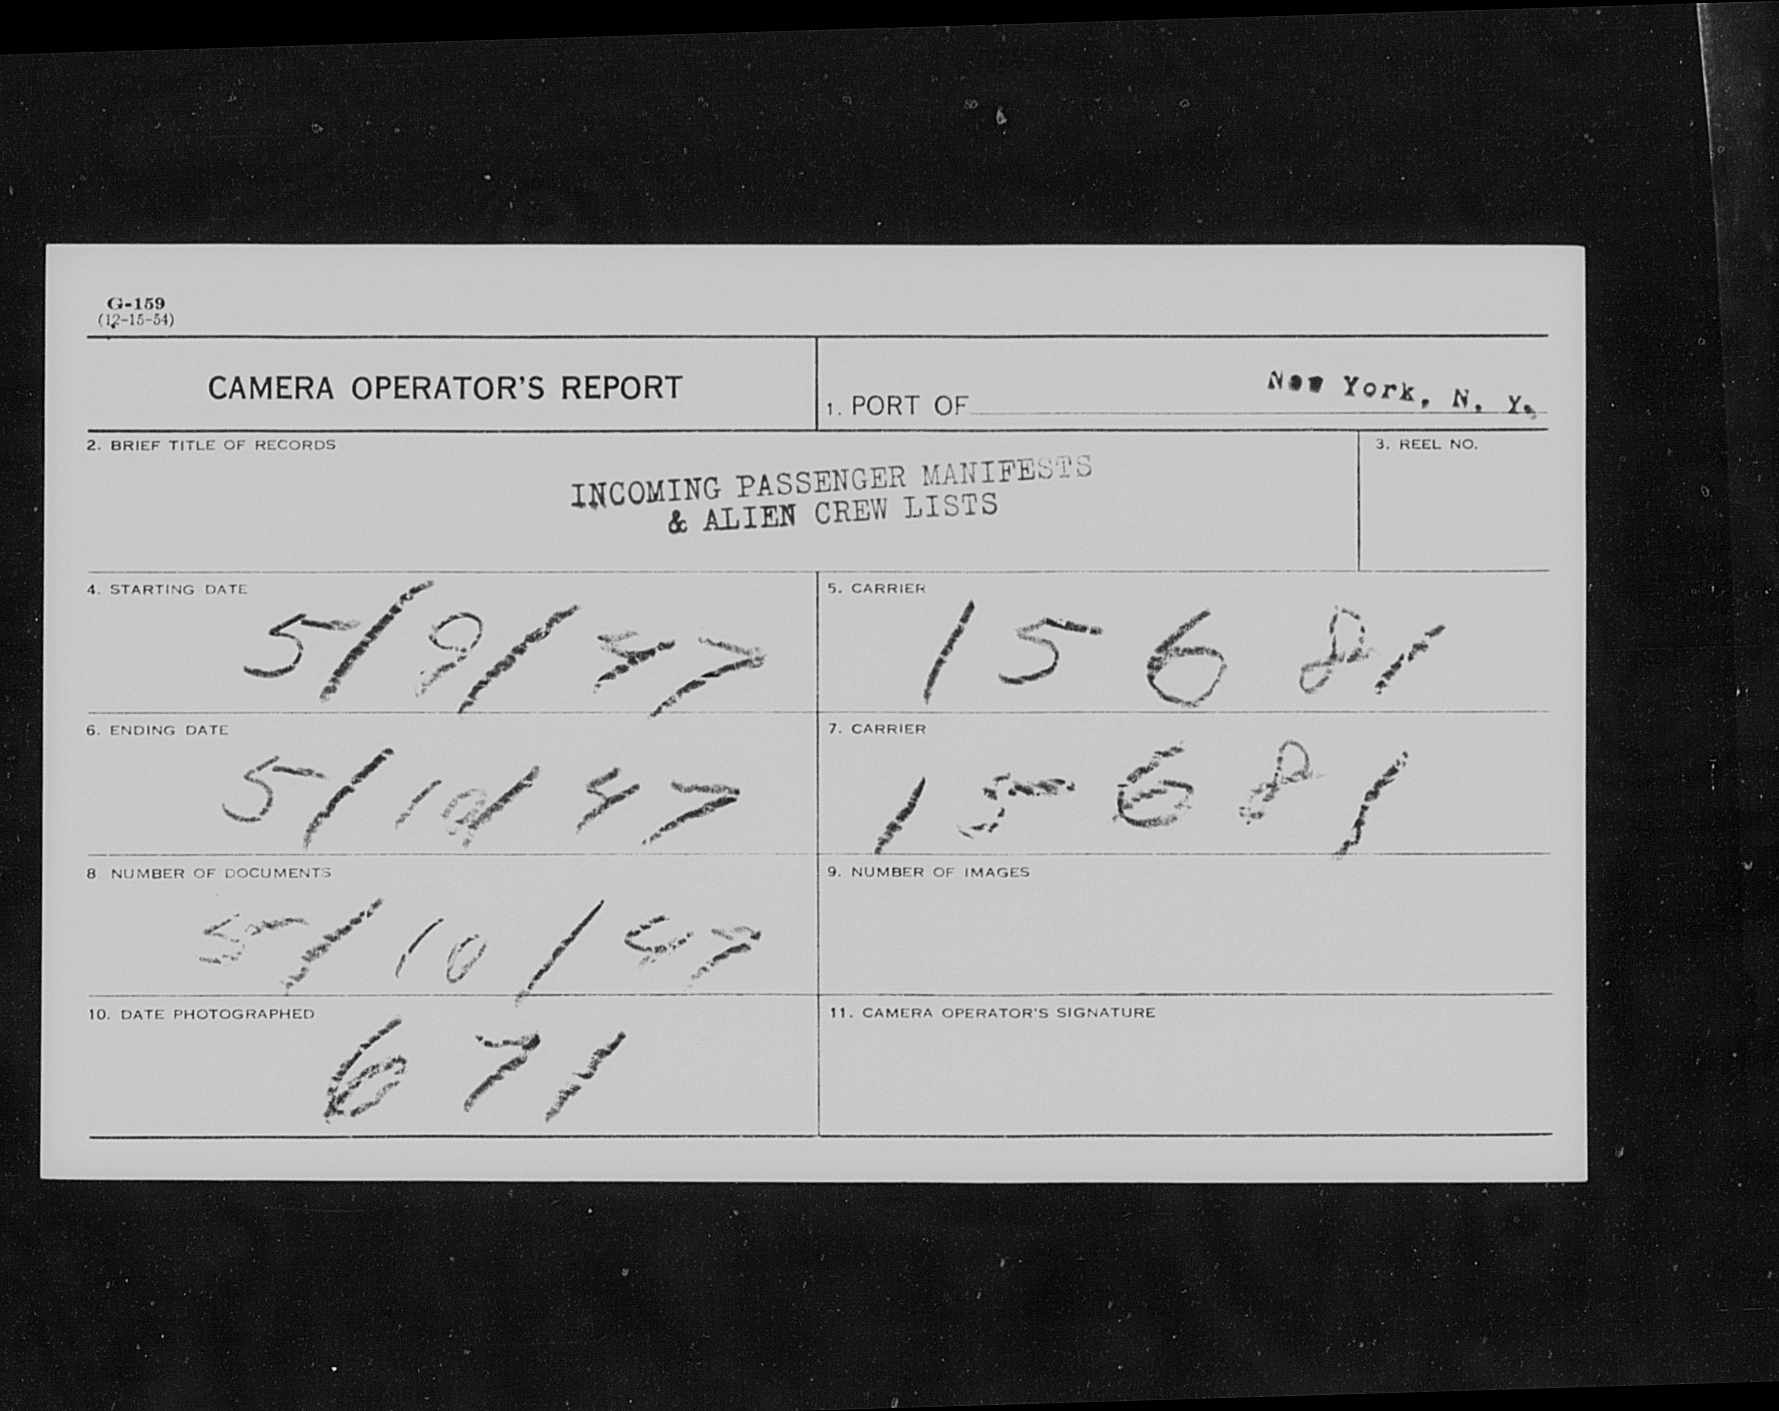 G-159
(12-15-54)
CAMERA OPERATOR'S REPORT
1. PORT OF New York, N. Y.
2. BRIEF TITLE OF RECORDS
INCOMING PASSENGER MANIFESTS
& ALIEN CREW LISTS
3. REEL NO.
4. STARTING DATE
5/9/47
5. CARRIER
15681
6. ENDING DATE
5/10/47
7. CARRIER
15681
8 NUMBER OF DOCUMENTS
5/10/47
9. NUMBER OF IMAGES
10. DATE PHOTOGRAPHED
671
11. CAMERA OPERATOR'S SIGNATURE